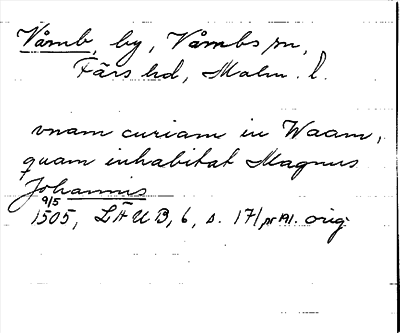 Våmb, by, Våmbs sn,
Färs hd, Malm. l.
vnam curiam in Waam,
quam inhabitat Magnus
Johannis
9/5
1505, LÄUB, 6, s. 171 pr Al. orig